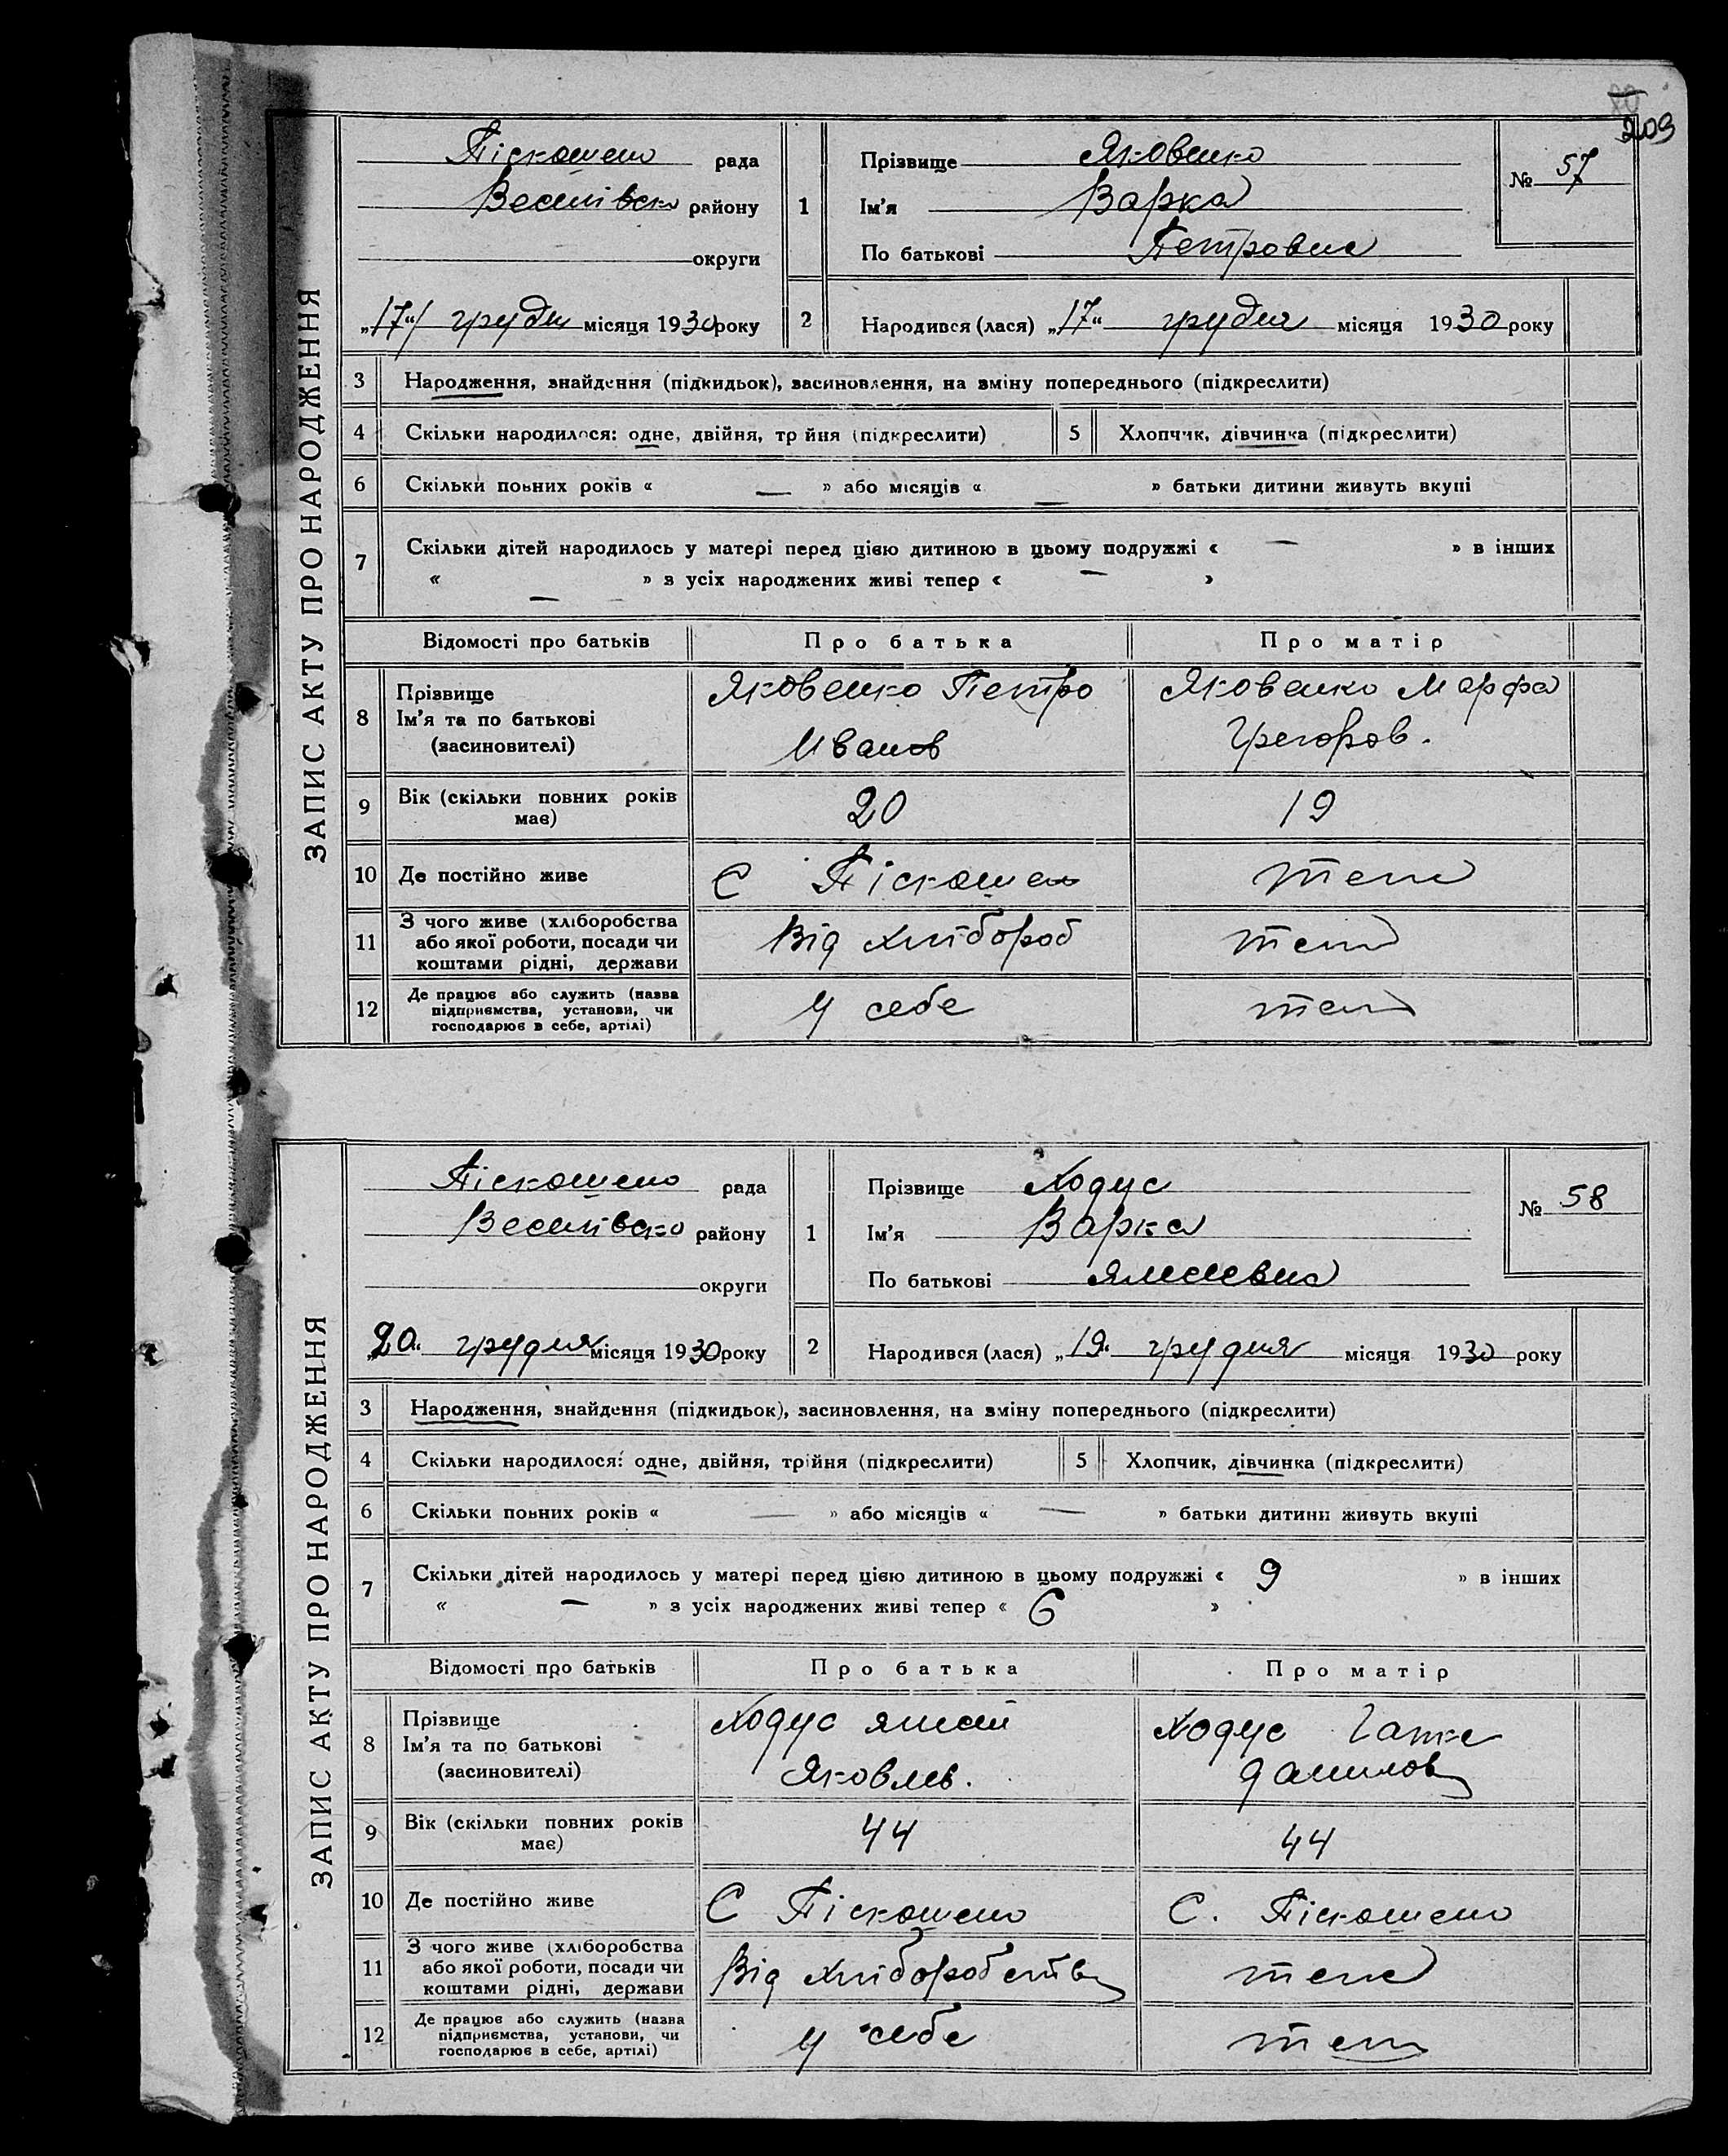 209
ЗАПИС АКТУ ПРО НАРОДЖЕННЯ
Піскошено рада
Веселівсько району
округи
„17“ грудня місяця 1930 року
1
Прізвище Яковенко
Ім'я Варка
По батькові Петровна
№ 57
2
Народився (лася) „17“ грудня місяця 1930 року
3 Народження, знайдення (підкидьок), засиновлення, на зміну попереднього (підкреслити)
4 Скільки народилося: одне, двійня, трійня (підкреслити)
5 Хлопчик, дівчинка (підкреслити)
6 Скільки повних років « — » або місяців « — » батьки дитини живуть вкупі
7 Скільки дітей народилось у матері перед цією дитиною в цьому подружжі « — » в інших
« — » з усіх народжених живі тепер « — »
Відомості про батьків Про батька Про матір
8 Прізвище
Ім'я та по батькові
(засиновителі)
Яковенко Петро
Иванов
Яковенко Марфа
Грегоров.
9 Вік (скільки повних років має) 20 19
10 Де постійно живе С Піскошено теж
11 З чого живе (хліборобства
або якої роботи, посади чи
коштами рідні, держави
Від хлібороб теж
12 Де працює або служить (назва
підприємства, установи, чи
господарює в себе, артілі)
У себе теж
ЗАПИС АКТУ ПРО НАРОДЖЕННЯ
Піскошено рада
Веселівсько району
округи
„20“ грудня місяця 1930 року
1
Прізвище Ходус
Ім'я Варка
По батькові
№ 58
2
Народився (лася) „19“ грудня місяця 1930 року
3 Народження, знайдення (підкидьок), засиновлення, на зміну попереднього (підкреслити)
4 Скільки народилося: одне, двійня, трійня (підкреслити)
5 Хлопчик, дівчинка (підкреслити)
6 Скільки повних років « — » або місяців « — » батьки дитини живуть вкупі
7 Скільки дітей народилось у матері перед цією дитиною в цьому подружжі « 9 » в інших
« — » з усіх народжених живі тепер « 6 »
Відомості про батьків Про батька Про матір
8 Прізвище
Ім'я та по батькові
(засиновителі)
Ходус
Яковлев.
Ходус
Данилов
9 Вік (скільки повних років має) 44 44
10 Де постійно живе С Піскошено С. Піскошено
11 З чого живе (хліборобства
або якої роботи, посади чи
коштами рідні, держави
Від хліборобства теж
12 Де працює або служить (назва
підприємства, установи, чи
господарює в себе, артілі)
У себе теж